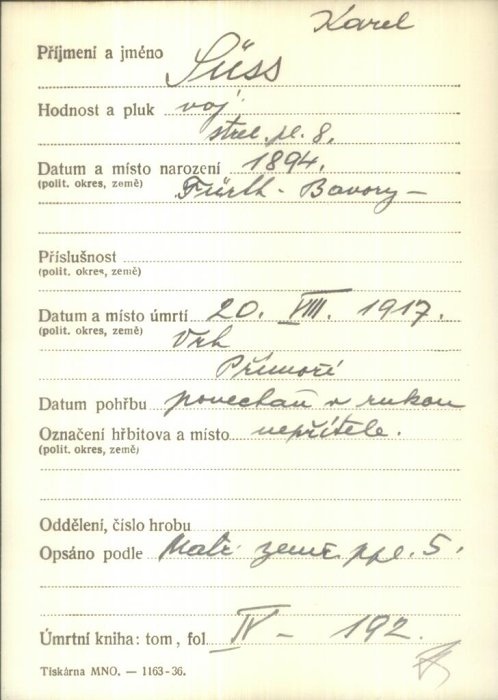 Karel
Příjmení a jméno Süss
Hodnost a pluk voj.
střel. pl. 8.
Datum a místo narození 1894.
(polit. okres, země) Fürth - Bavory -
Příslušnost
(polit. okres, země)
Datum a místo úmrtí 20. VIII. 1917.
(polit. okres, země) Vrh
Přímoří
Datum pohřbu ponechán v rukou
Označení hřbitova a místo nepřítele.
(polit. okres, země)
Oddělení, číslo hrobu
Opsáno podle Matr. zemř. ppl. 5.
Úmrtní kniha: tom, fol. IV - 192.
Tiskárna MNO. — 1163-36.